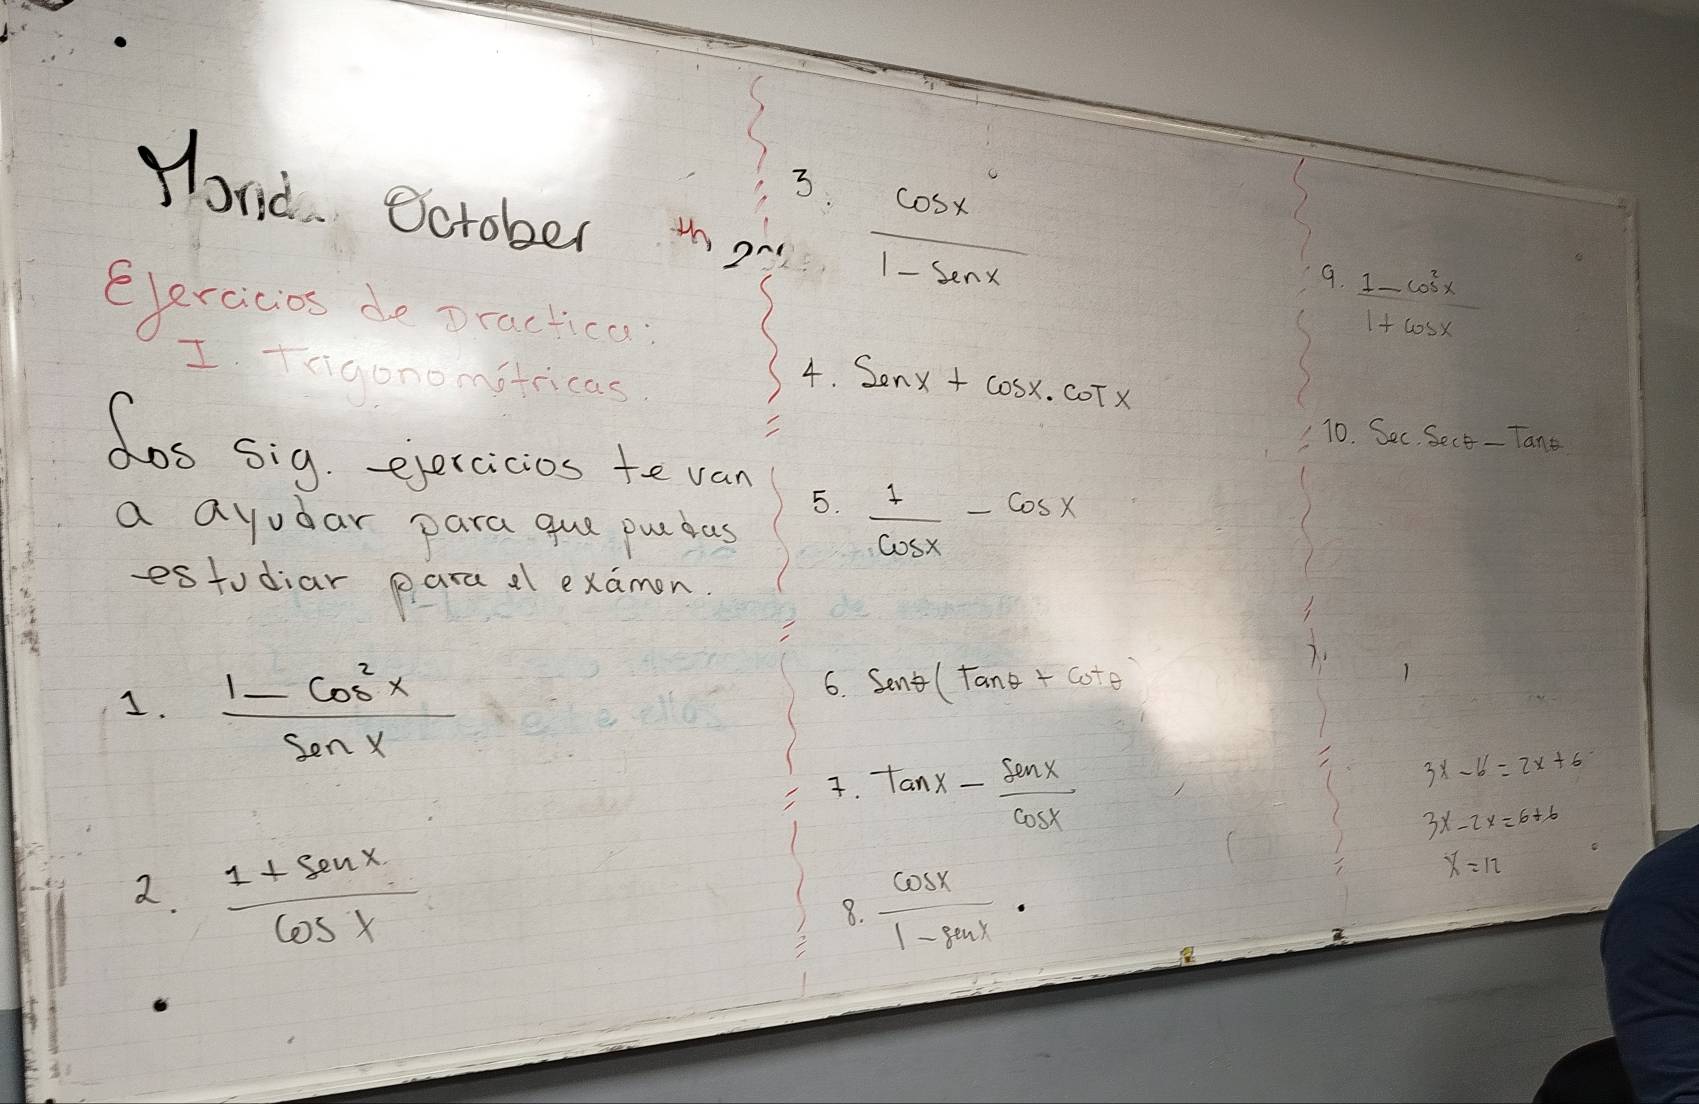 October th
Ejercicios de practica:
I. Trigonométricas.
Los sig. ejercicios te van
a ayudar para que puedas
estudiar para el exámen.
1. 1 - Cos² x
Sen x
2. 1 + Sen x
Cos x
3. Cos x
1 - Sen x
4. Sen x + cos x . Cot x
5. 1 - Cos x
Cos x
6. Sen θ ( Tan θ + Cot θ
7. Tan x - Sen x
Cos x
8. Cos x
1 - Sen x
9. 1 - cos² x
1 + cos x
10. Sec. Sec θ - Tan θ
3x - 6 = 2x + 6
3x - 2x = 6 + 6
x = 12